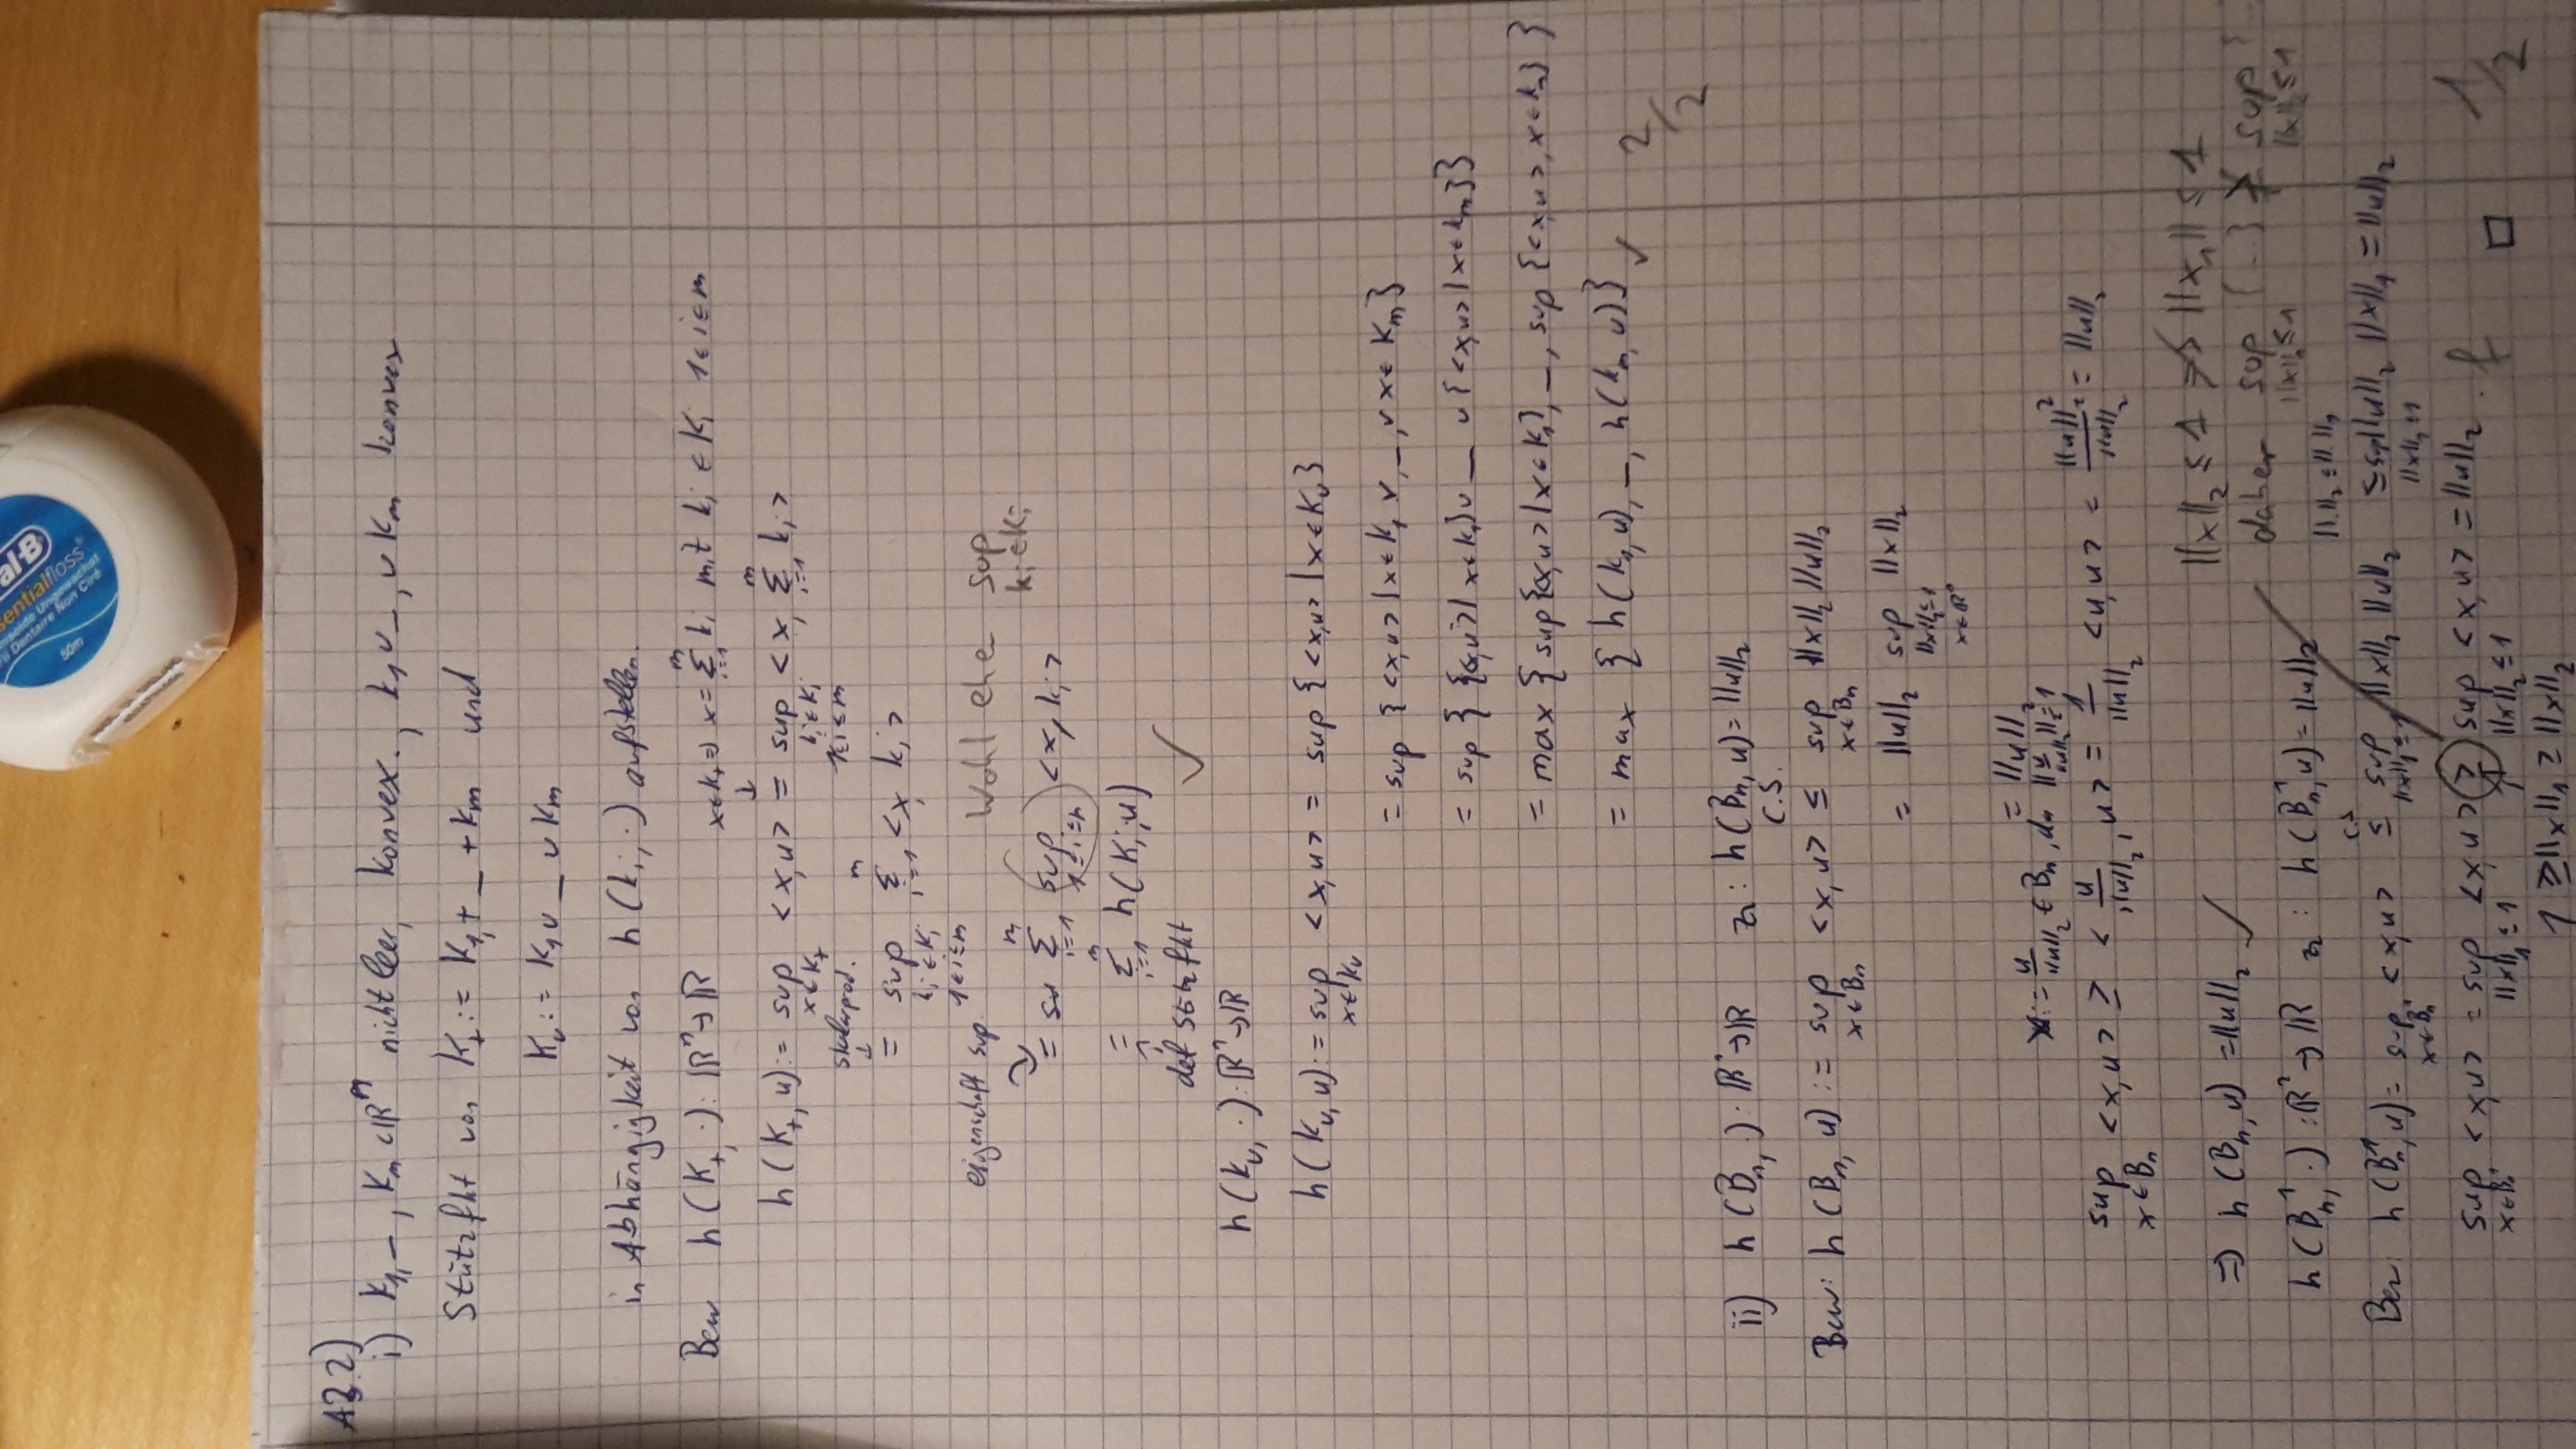 al-B
essentialfloss
50m
A3.2)
i) K₁, –, Kₘ ⊂ ℝᵐ nichtleer, konvex., K₁ ∪ –, ∪ Kₘ konvex
Stützfkt von K₊ := K₁, + – + Kₘ und
K∪ := K₁ ∪ – ∪ Kₘ
in Abhängigkeit von h(Kᵢ, ·) aufstellen.
Bew h(K₊, ·): ℝⁿ → ℝ x ∈ K₊ ⇒ x = Σᵢ₌₁ᵐ kᵢ mit kᵢ ∈ Kᵢ 1 ≤ i ≤ m
h(K₊, u) := sup_{x ∈ K₊} <x, u> = sup_{kᵢ ∈ Kᵢ, 1 ≤ i ≤ m} <x, Σᵢ₌₁ᵐ kᵢ>
skalarprod.
= sup_{kᵢ ∈ Kᵢ, 1 ≤ i ≤ m} Σᵢ₌₁ᵐ <x, kᵢ>
eigenschaft sup Wohl eher sup_{kᵢ ∈ Kᵢ}
= Σᵢ₌₁ᵐ sup_{1 ≤ i ≤ n} <x, kᵢ>
= Σᵢ₌₁ᵐ h(Kᵢ, u)
def Stützfkt ✓
h(K∪, ·): ℝⁿ → ℝ
h(K∪, u) := sup_{x ∈ K∪} <x, u> = sup {<x, u> | x ∈ K∪}
= sup {<x, u> | x ∈ K₁ ∨, –, ∨ x ∈ Kₘ}
= sup { {<x, u> | x ∈ K₁} ∪ – ∪ {<x, u> | x ∈ Kₘ} }
= max { sup {<x, u> | x ∈ K₁}, –, sup {<x, u>, x ∈ Kₙ} }
= max { h(K₁, u), –, h(Kₙ, u) } ✓ 2/2
ii) h(Bₙ, ·): ℝⁿ → ℝ zz: h(Bₙ, u) = ||u||₂
C.S.
Bew: h(Bₙ, u) := sup_{x ∈ Bₙ} <x, u> ≤ sup_{x ∈ Bₙ} ||x||₂ ||u||₂
= ||u||₂ sup_{||x||₂ ≤ 1, x ∈ ℝⁿ} ||x||₂
= ||u||₂
x := u/||u||₂ ∈ Bₙ, da ||u/||u||₂|| = 1
sup_{x ∈ Bₙ} <x, u> ≥ <u/||u||₂, u> = 1/||u||₂ <u, u> = ||u||₂²/||u||₂ = ||u||₂
||x||₂ ≤ 1 ⇏ ||x₁|| ≤ 1
⇒ h(Bₙ, u) = ||u||₂ ✓
daher sup_{||x||₁ ≤ 1} {..} ≱ sup_{||x||₂ ≤ 1}
h(Bₙ¹, ·): ℝⁿ → ℝ zz: h(Bₙ¹, u) = ||u||₂
C.S ||.||₂ ≤ ||.||₁
Bew: h(Bₙ¹, u) = sup_{x ∈ Bₙ¹} <x, u> ≤ sup_{||x||₁ ≤ 1} ||x||₂ ||u||₂ ≤ sup_{||x||₁ ≤ 1} ||u||₂ ||x||₁ = ||u||₂
sup_{x ∈ Bₙ¹} <x, u> = sup_{||x||₁ ≤ 1} <x, u> ≥ sup_{||x||₂ ≤ 1} <x, u> = ||u||₂. f □ 1/2
1 ≥ ||x||₁ ≥ ||x||₂